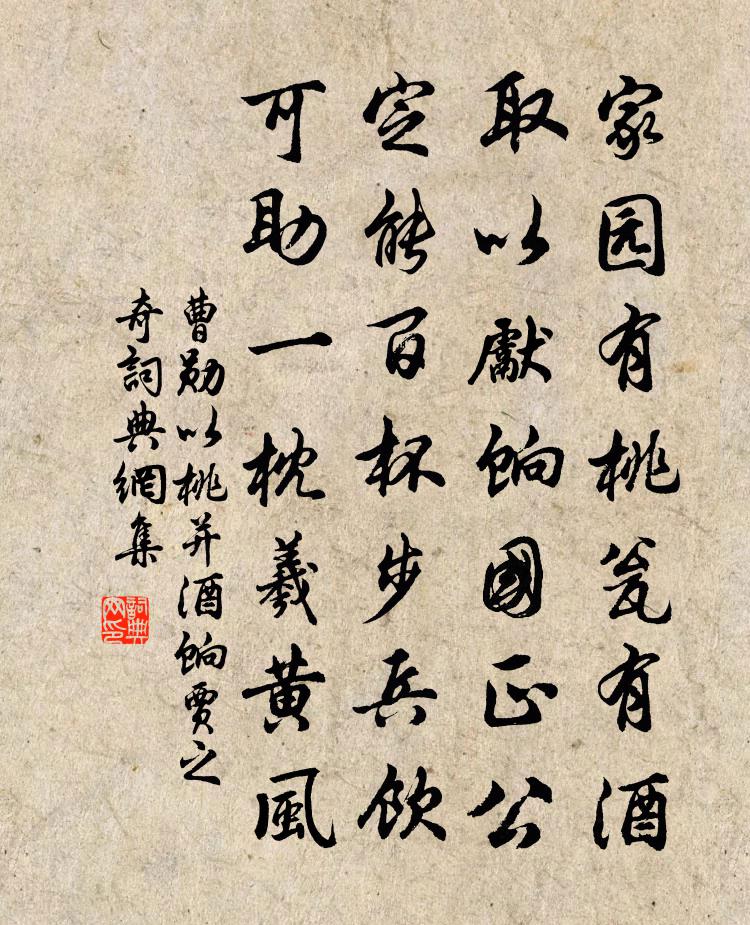 家园有桃瓮有酒
取以獻餉國正公
定能百杯步兵飲
可助一枕羲黄風
曹勛以桃并酒餉賈之
奇詞典網集
詞典
网印